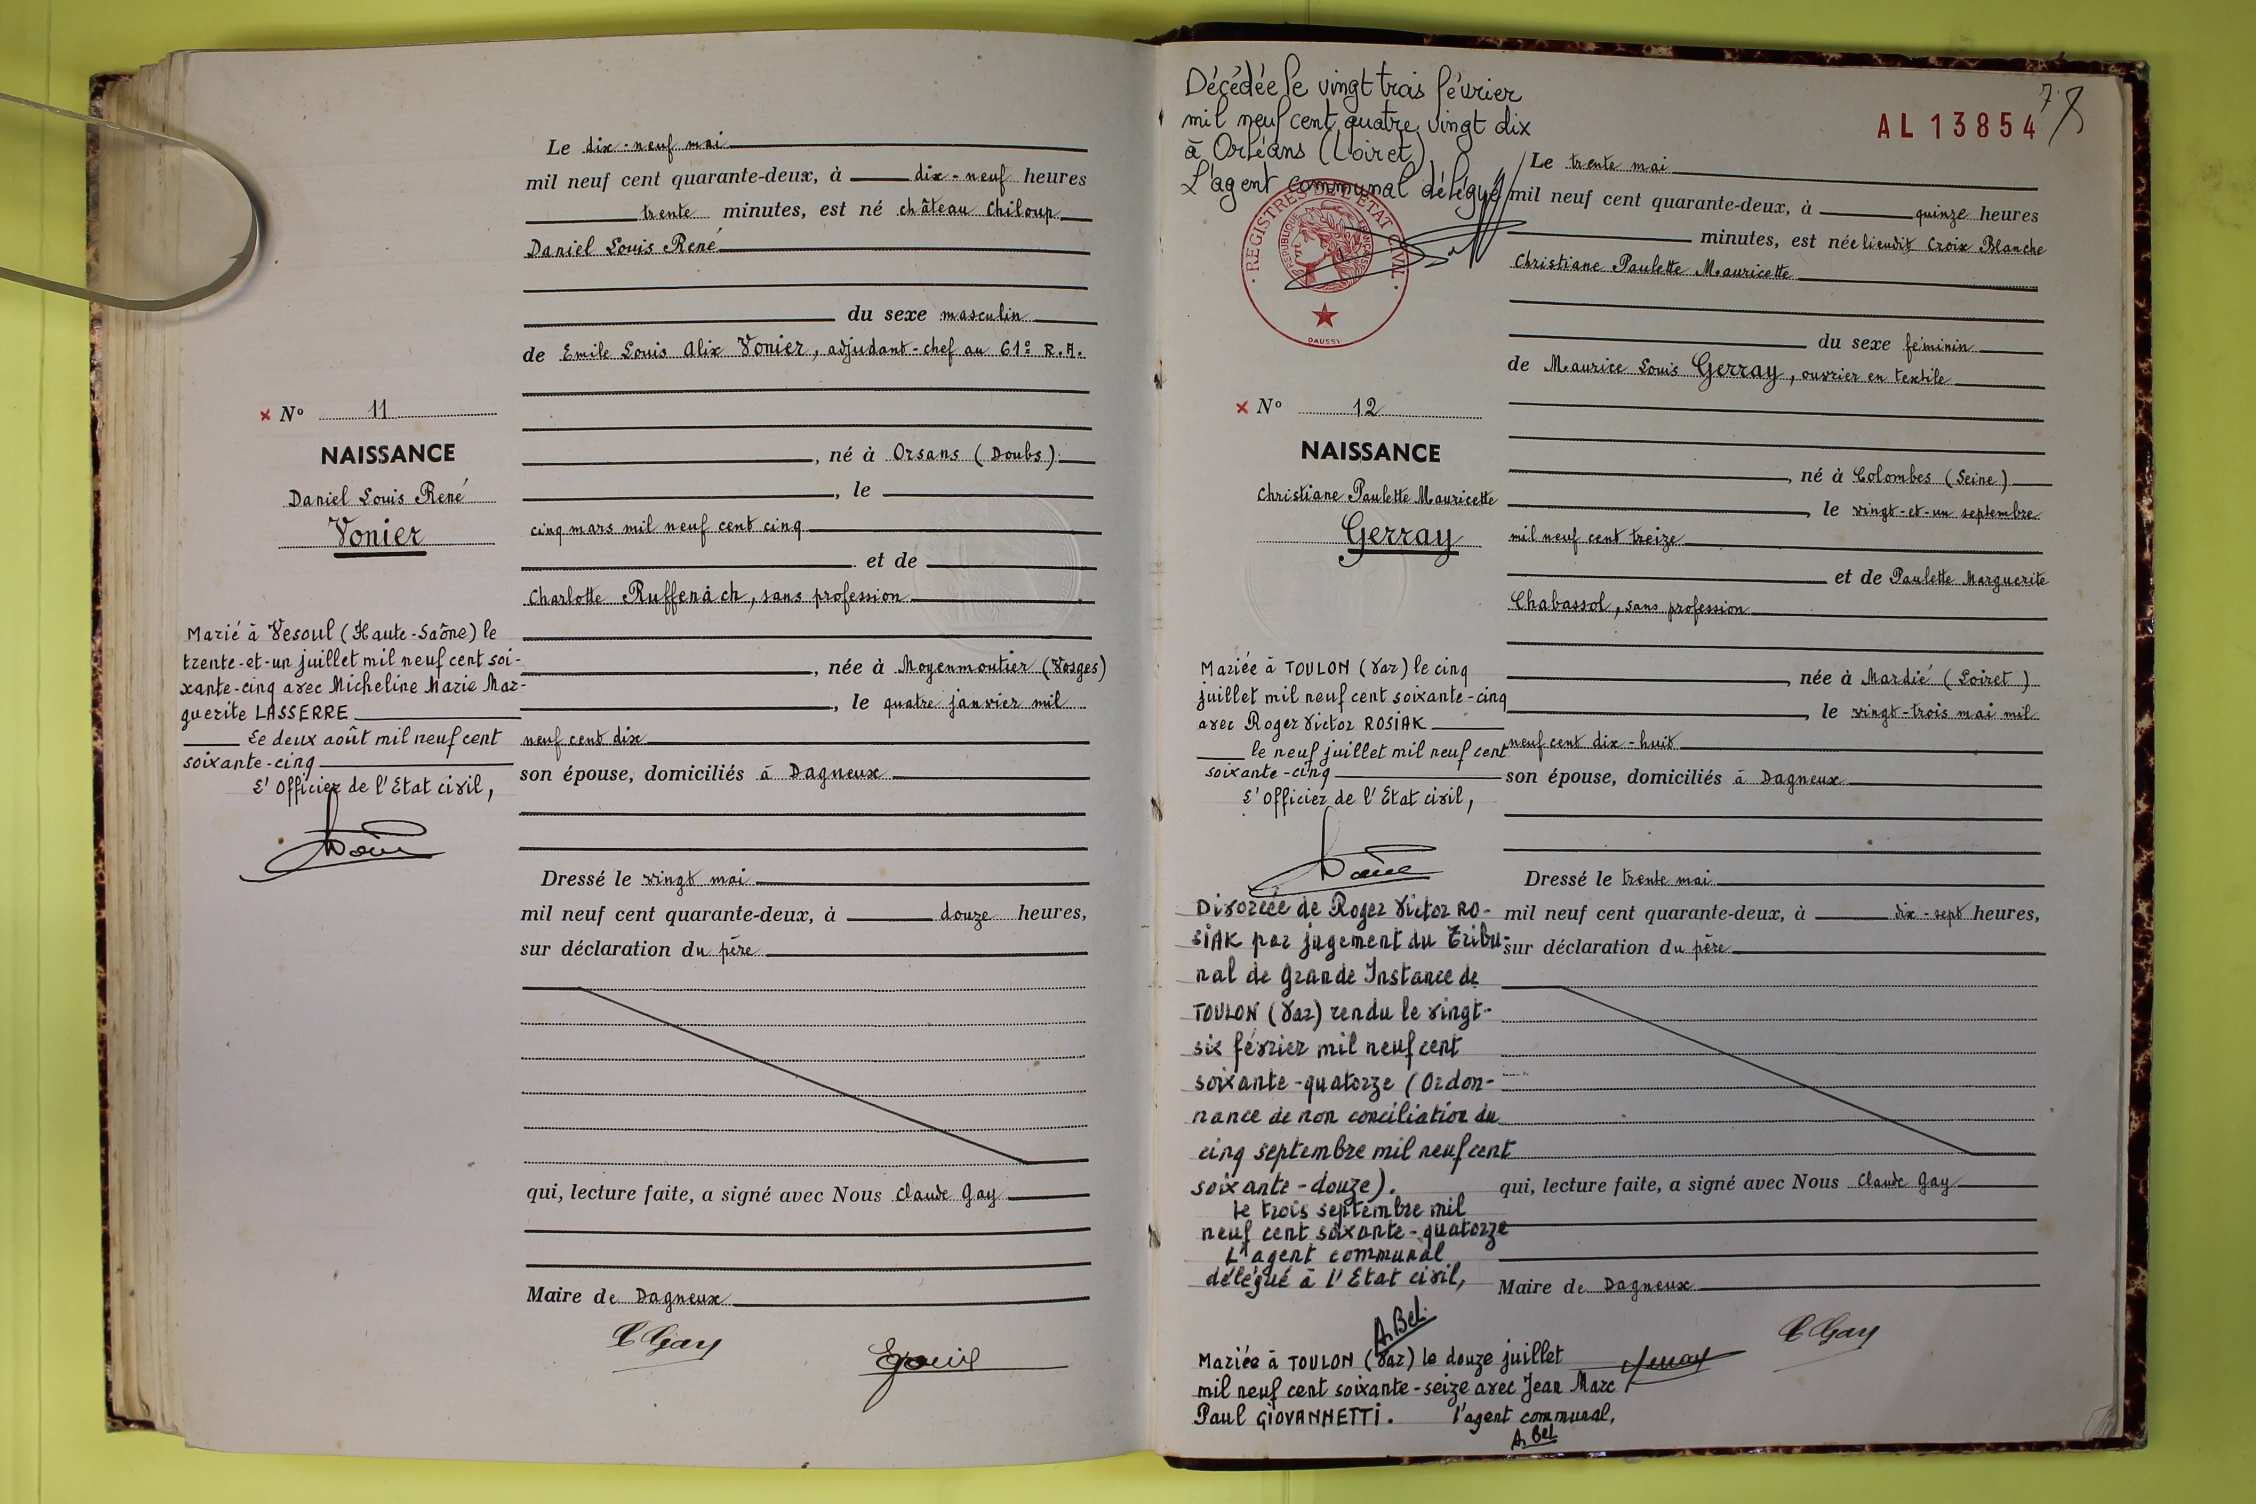 Le dix-neuf mai
mil neuf cent quarante-deux, à dix-neuf heures
trente minutes, est né château Chiloup
Daniel Louis René
du sexe masculin
de Emile Louis Alix Vonier, adjudant-chef au 61e R.A.
× No 11
NAISSANCE
Daniel Louis René
Vonier
, né à Orsans (Doubs)
, le
cinq mars mil neuf cent cinq
et de
Charlotte Ruffenach, sans profession
, née à Moyenmoutier (Vosges)
, le quatre janvier mil
neuf cent dix
son épouse, domiciliés à Dagneux
Marié à Vesoul (Haute-Saône) le
trente-et-un juillet mil neuf cent soi-
xante-cinq avec Micheline Marie Mar-
guerite LASSERRE
Le deux août mil neuf cent
soixante-cinq
L'Officier de l'Etat civil,
Dressé le vingt mai
mil neuf cent quarante-deux, à douze heures,
sur déclaration du père
qui, lecture faite, a signé avec Nous Claude Gay
Maire de Dagneux
C Gay
Décédée le vingt trois février
mil neuf cent quatre vingt dix
à Orléans (Loiret)
L'agent communal délégué
REGISTRES DE L'ETAT CIVIL
REPUBLIQUE FRANÇAISE
DAUSSI
AL 13854
7
Le trente mai
mil neuf cent quarante-deux, à quinze heures
minutes, est née lieudit Croix Blanche
Christiane Paulette Mauricette
du sexe féminin
de Maurice Louis Gerray, ouvrier en textile
× No 12
NAISSANCE
Christiane Paulette Mauricette
Gerray
, né à Colombes (Seine)
, le vingt-et-un septembre
mil neuf cent treize
et de Paulette Marguerite
Chabassol, sans profession
, née à Mardié (Loiret)
, le vingt-trois mai mil
neuf cent dix-huit
son épouse, domiciliés à Dagneux
Mariée à TOULON (Var) le cinq
juillet mil neuf cent soixante-cinq
avec Roger Victor ROSIAK
le neuf juillet mil neuf cent
soixante-cinq
L'Officier de l'Etat civil,
Divorcée de Roger Victor RO-
SIAK par jugement du Tribu-
nal de Grande Instance de
TOULON (Var) rendu le vingt-
six février mil neuf cent
soixante-quatorze (Ordon-
nance de non conciliation du
cinq septembre mil neuf cent
soixante-douze).
Le trois septembre mil
neuf cent soixante-quatorze
L'agent communal
délégué à l'Etat civil,
A. Bel
Dressé le trente mai
mil neuf cent quarante-deux, à dix-sept heures,
sur déclaration du père
qui, lecture faite, a signé avec Nous Claude Gay
Maire de Dagneux
C Gay
Mariée à TOULON (Var) le douze juillet
mil neuf cent soixante-seize avec Jean Marc
Paul GIOVANNETTI. l'agent communal,
A. Bel